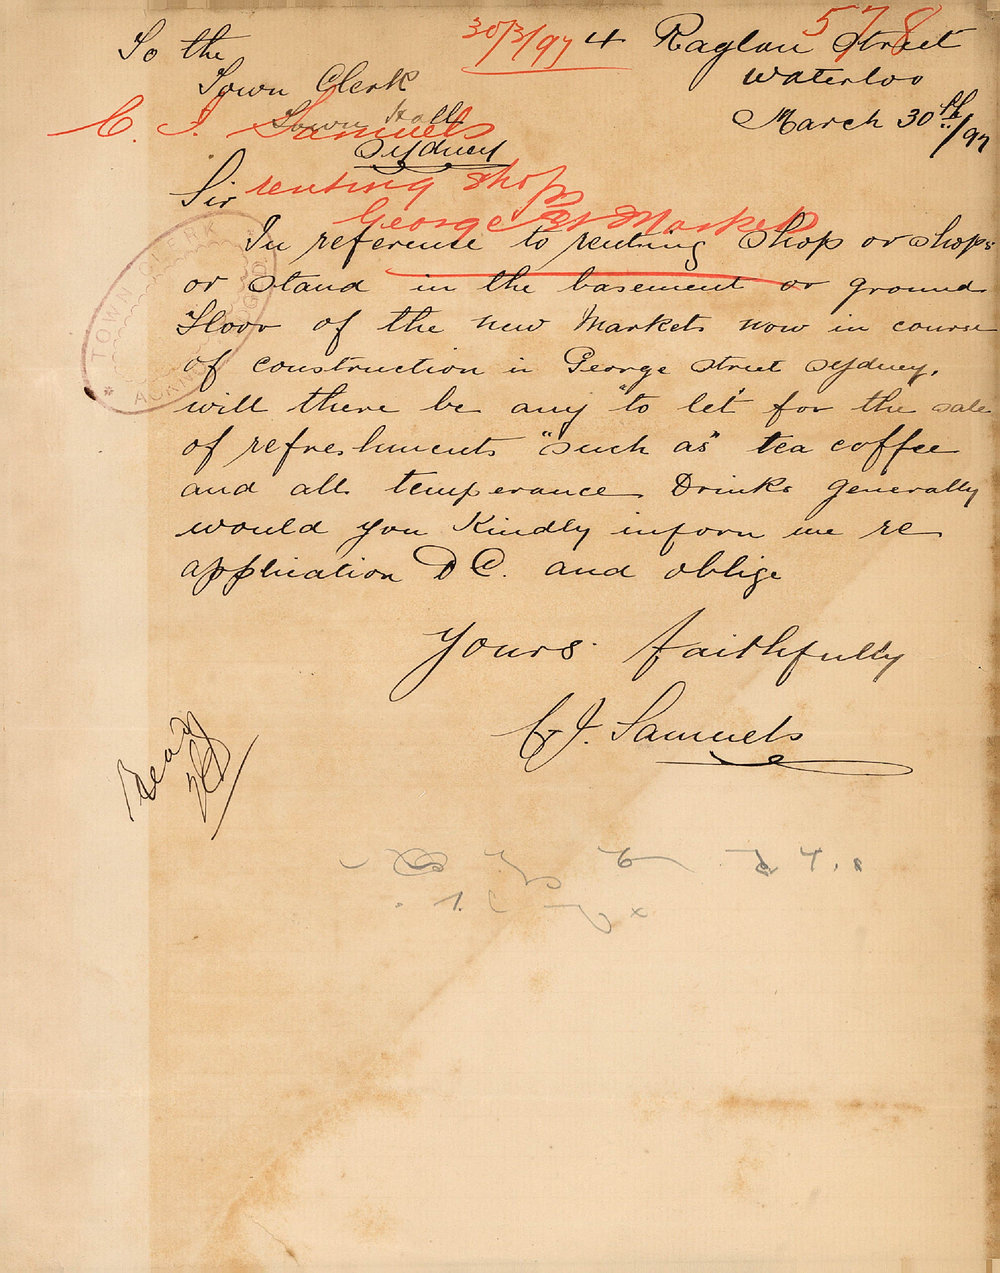 578
30/3/97
4 Raglan Street
Waterloo
March 30th/97
To the
Town Clerk
Town Hall
Sydney
C. J. Samuels
renting shop
George St Markets
Sir
In reference to renting Shop or shops
or Stand in the basement or ground
Floor of the new Markets now in course
of construction in George Street Sydney.
will there be any "to let" for the sale
of refreshments "such as" tea coffee
and all temperance Drinks generally
would you Kindly inform me re
application D C. and oblige
Yours faithfully
C. J. Samuels
TOWN CLERK